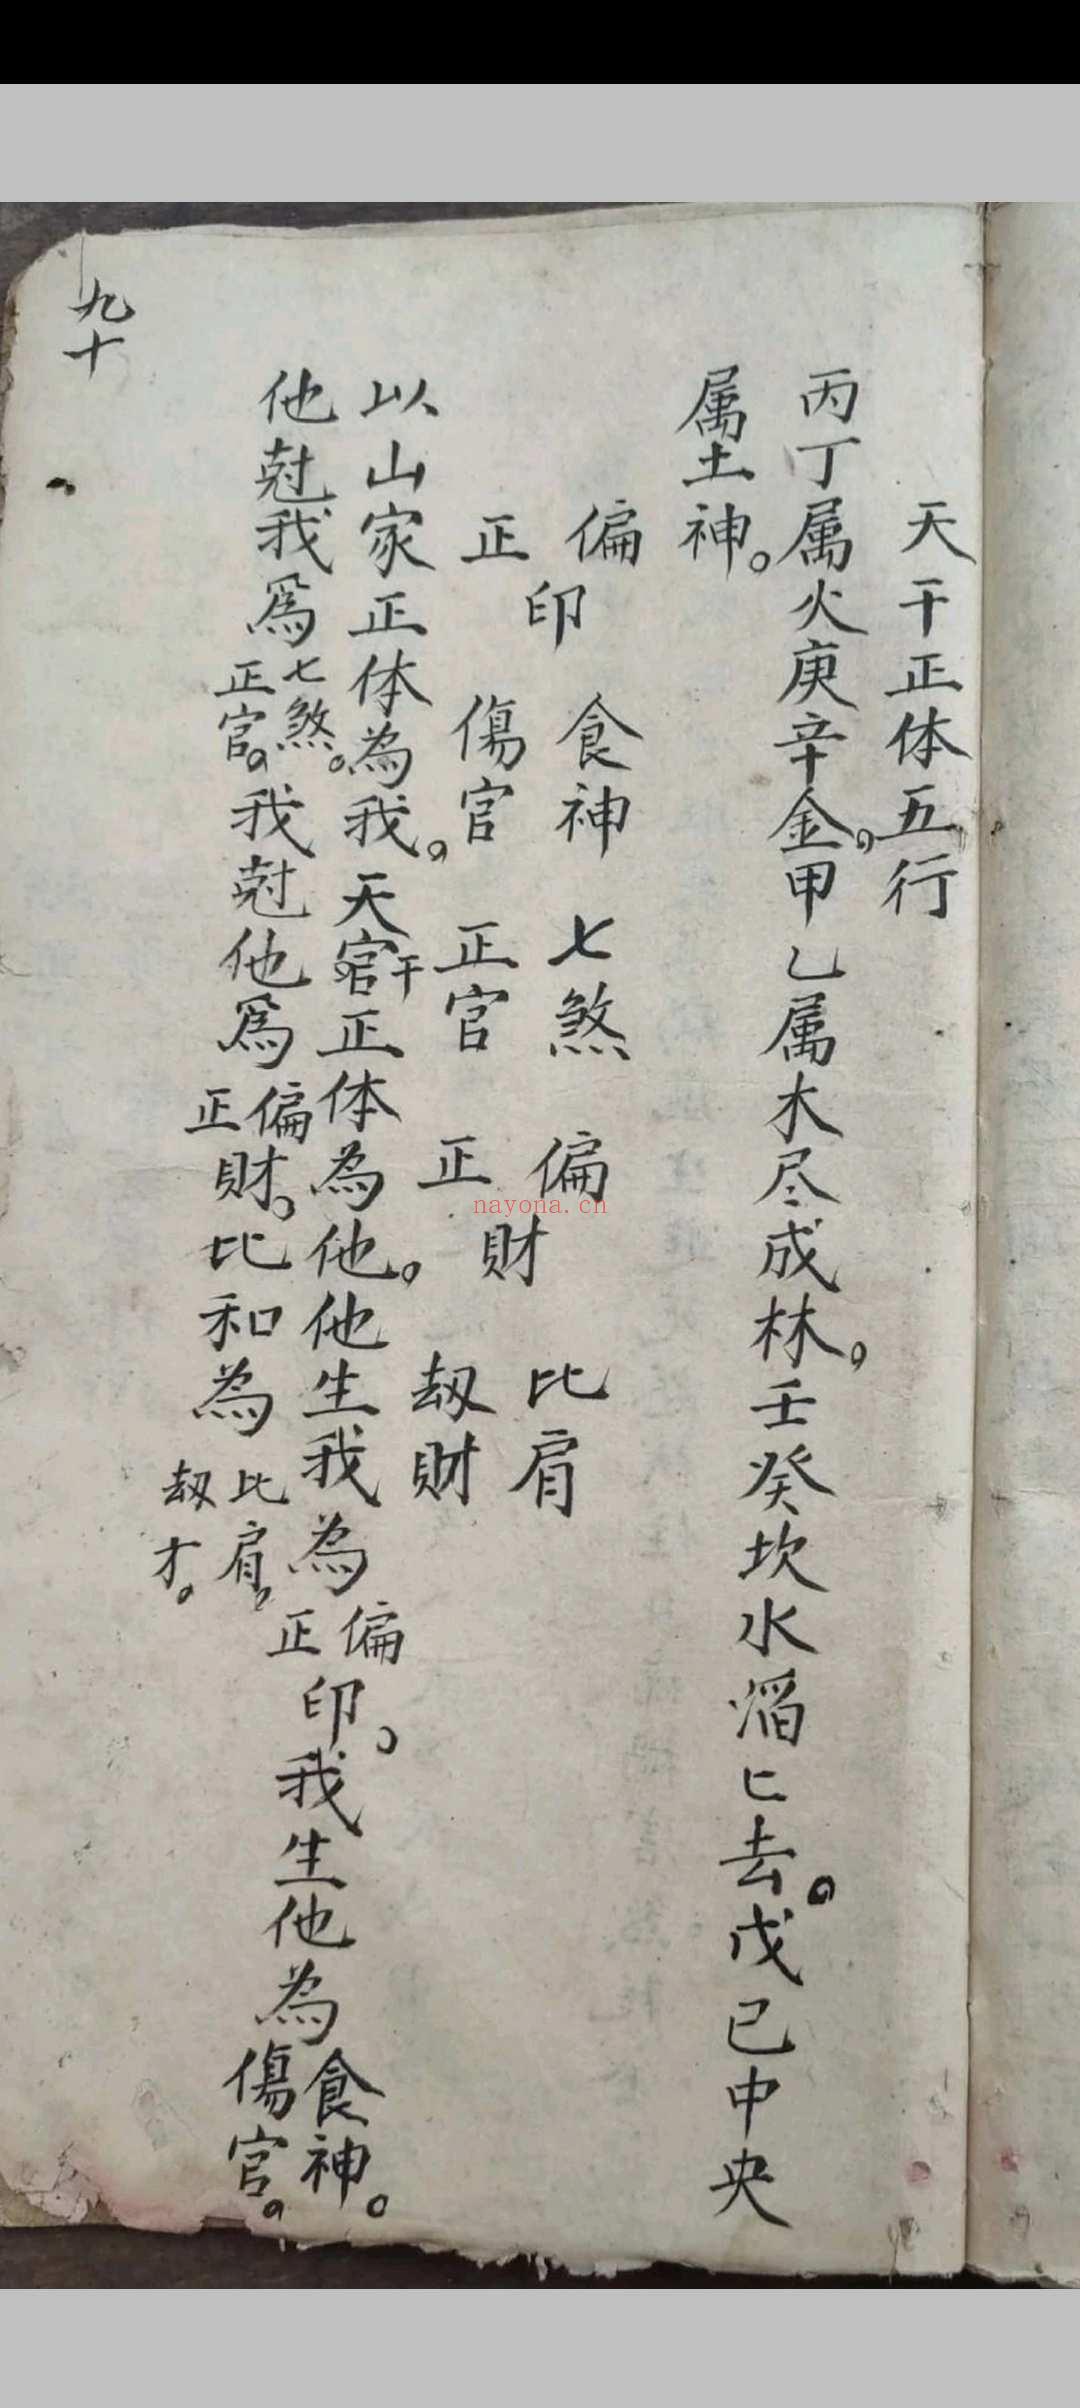 天干正体五行
丙丁属火庚辛金，甲乙属木尽成林。壬癸坎水滔匕去。戊己中央
属土神。
偏 食神 七煞 偏 比肩
印 財
正 傷官 正官 正 刼財
以山家正体為我。天官干正体為他。他生我為偏正印。我生他為食神。傷官。
他尅我爲七煞。正官。我尅他爲偏正財。比和為比肩。刼才。
九十
nayona.cn